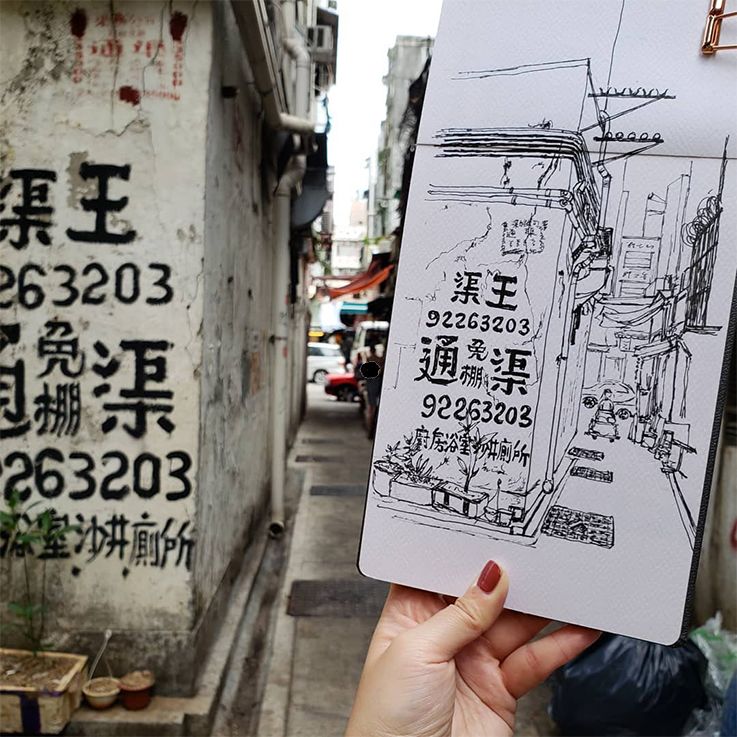 渠王
263203
通免棚渠
2263203
浴室沙井廁所
渠王
92263203
通免棚渠
92263203
廚房浴室沙井廁所